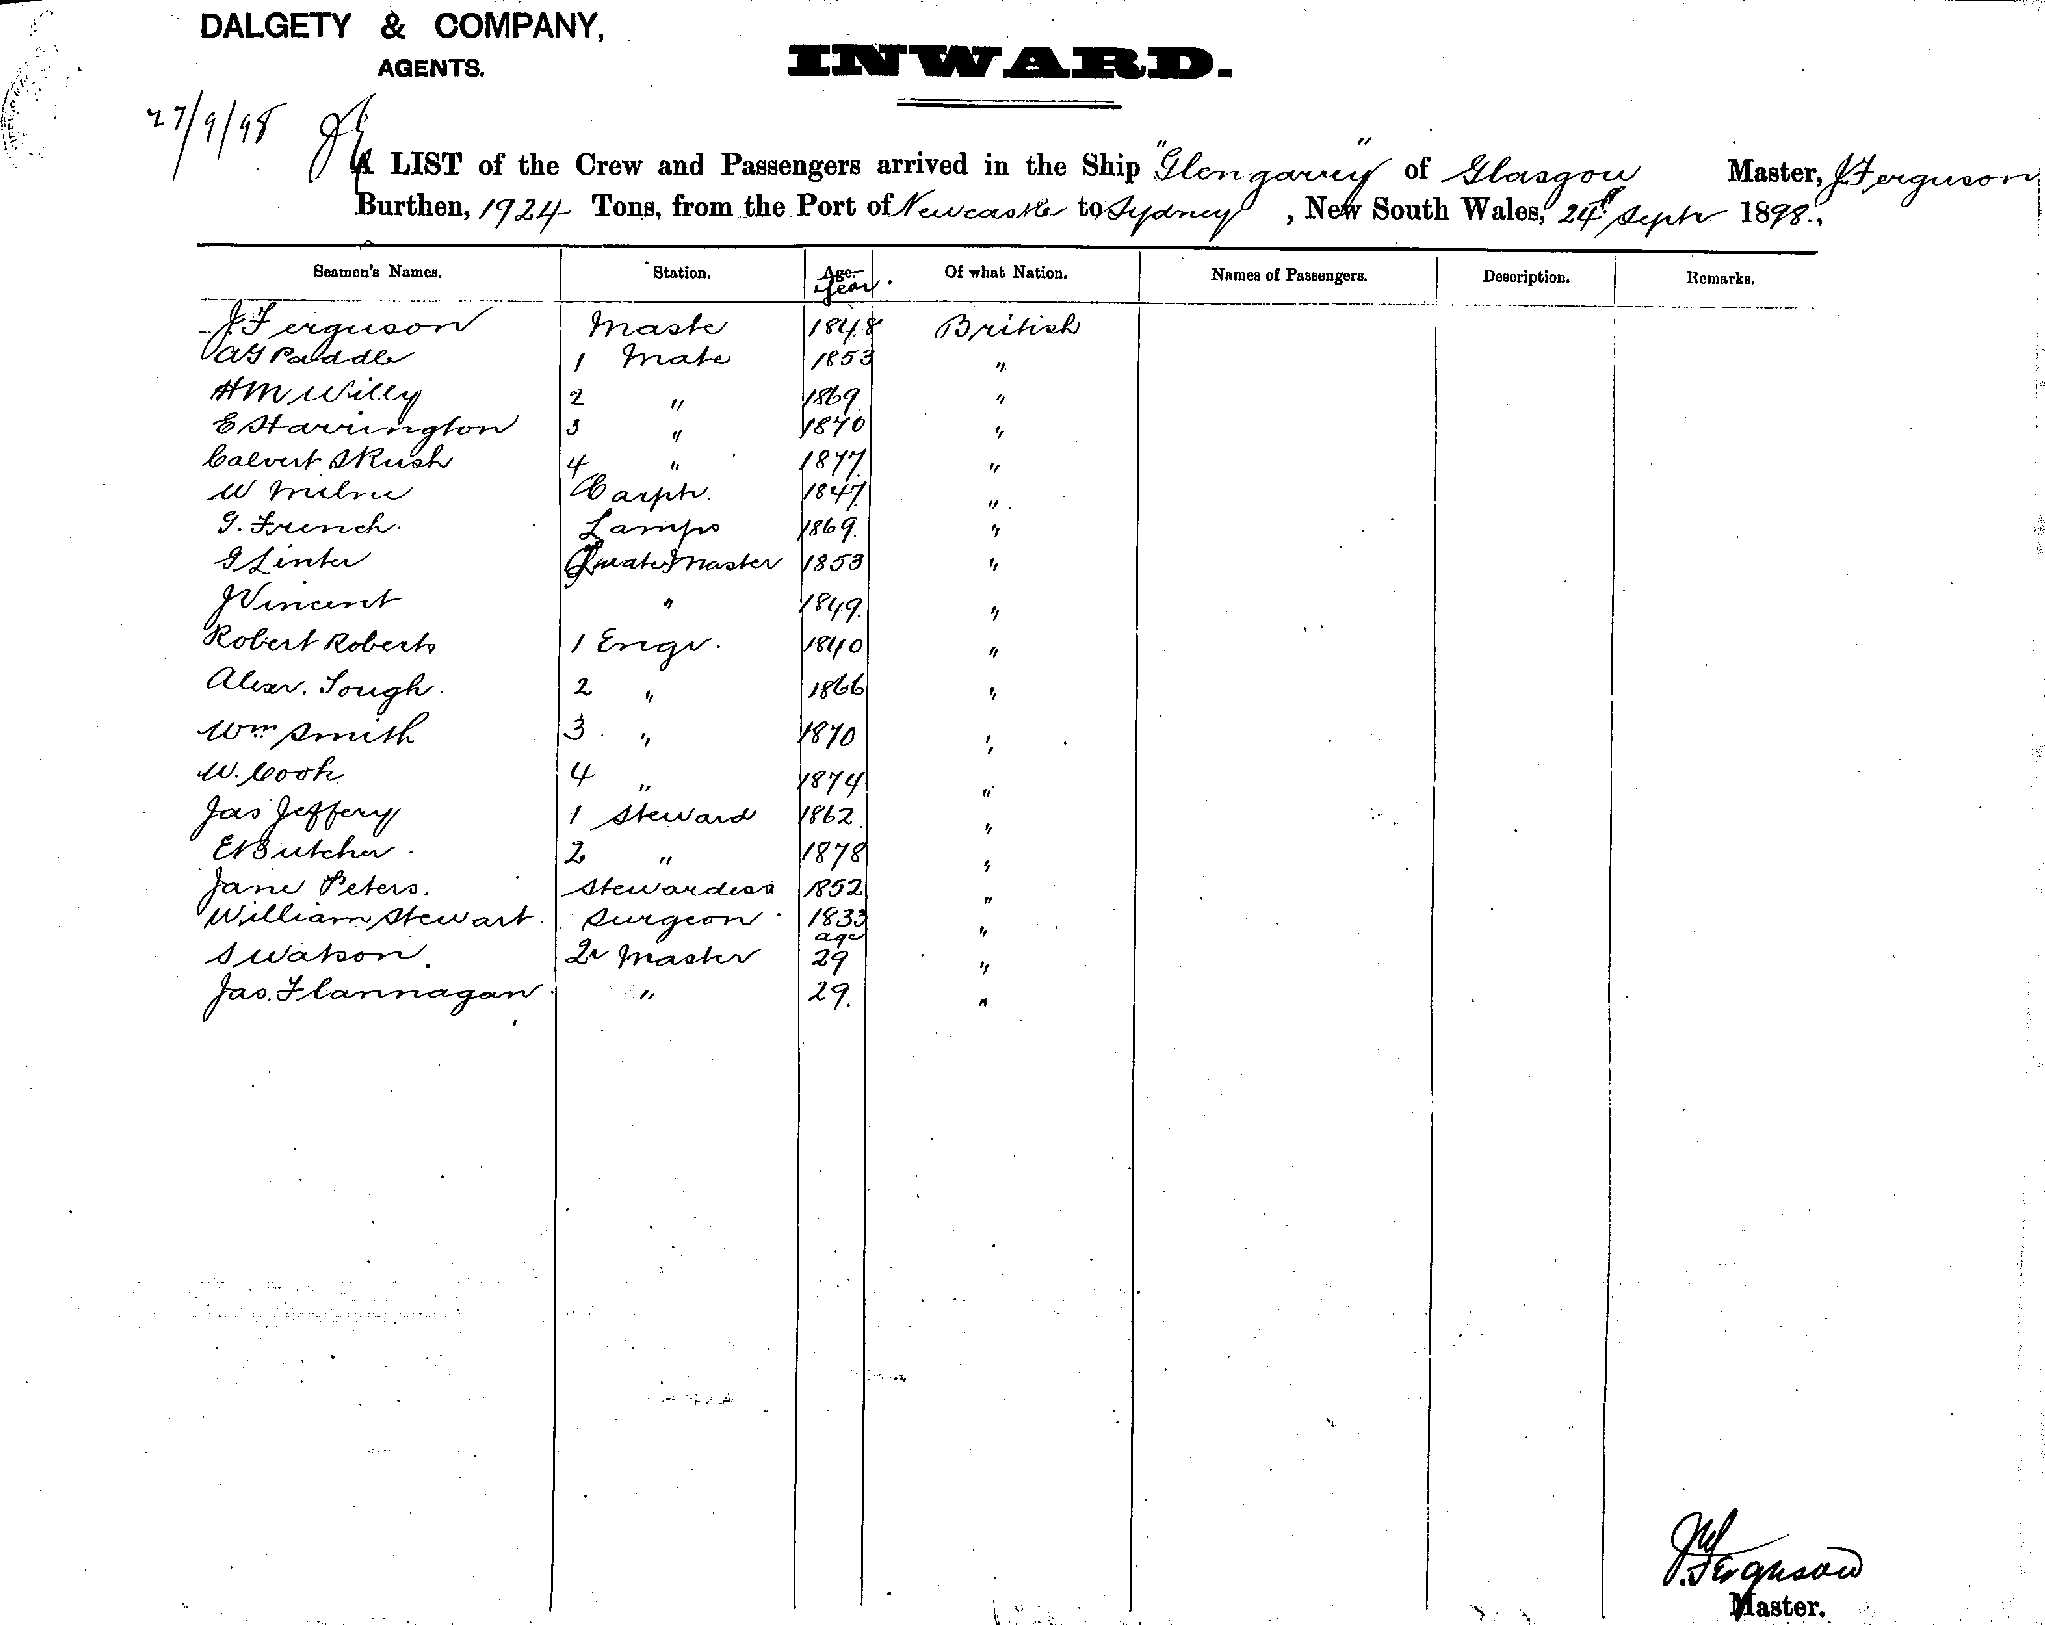 DALGETY & COMPANY,
AGENTS.
INWARD.
27/9/98
A LIST of the Crew and Passengers arrived in the Ship "Glengarry" of Glasgow Master, J Ferguson
Burthen, 1924 Tons, from the Port of Newcastle to Sydney, New South Wales, 24th Septr 1898.
Seamen's Names. Station. Age. Year. Of what Nation. Names of Passengers. Description. Remarks.
J Ferguson Maste 1848 British
A G Paddle 1 Mate 1853 "
H M Willy 2 " 1869 "
E Harrington 3 " 1870 "
Calvert S Rush 4 " 1877 "
W Milne Carptr. 1847 "
G. French. Lamps 1869. "
G Linter Quater Master 1853 "
J Vincent " 1849. "
Robert Roberts 1 Engr. 1840 "
Alexr. Tough. 2 " 1866 "
Wm Smith 3 " 1870 "
W. Cook 4 " 1874 "
Jas Jeffery 1 Steward 1862 "
E Butcher 2 " 1878 "
Jane Peters. Stewardess 1852 "
William Stewart. Surgeon 1833 "
age
S Watson. Qr Master 29 "
Jas. Flannagan " 29. "
J Ferguson
Master.